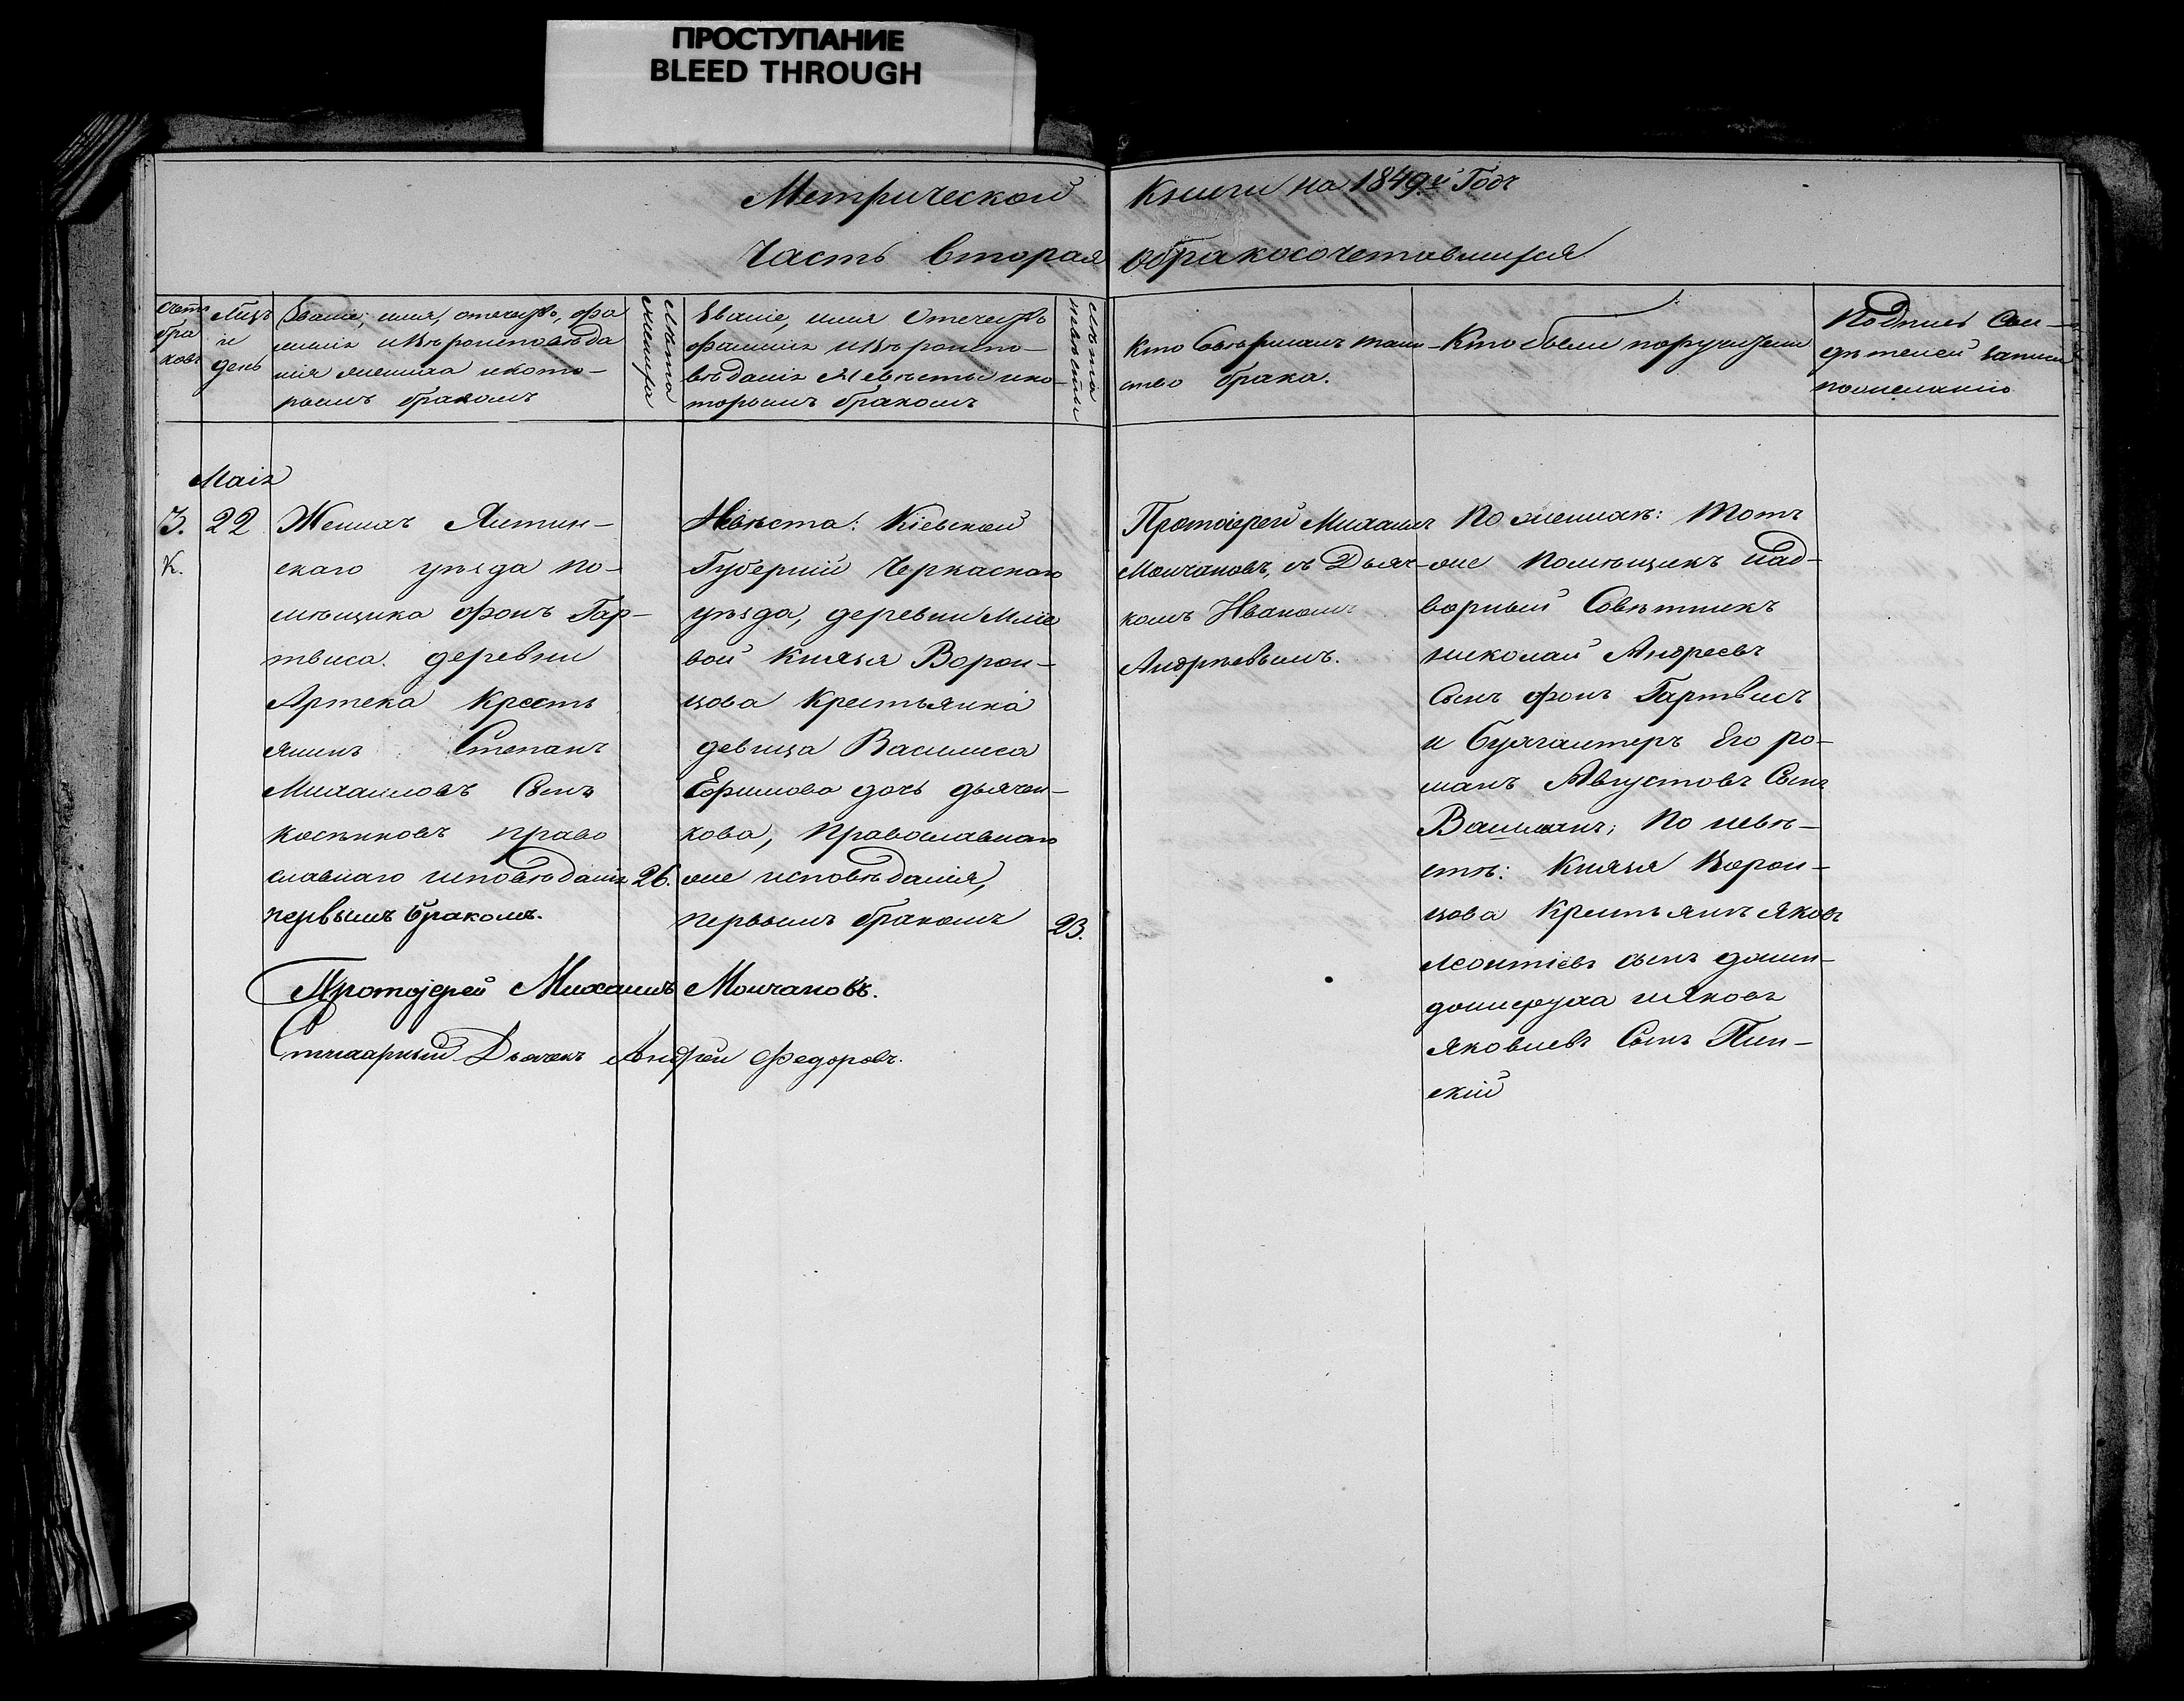 ПРОСТУПАНИЕ
BLEED THROUGH
Метрической Книги на 1849й Годъ
Часть вторая о бракосочетавшихся
Счетъ
бра
ковъ
Мцъ
и
день
Званіе, имя, отечество, фа
милія и Вѣроисповѣда
нія жениха и кото-
рымъ бракомъ
Лѣта
жениха
Званіе, имя Отечество
фамилія и Вѣроиспо-
вѣданія Невѣсты и ко-
торымъ бракомъ
Лѣта
невѣсты
Кто Совершалъ таин-
ство брака.
Кто были поручители
Подпись Сви-
дѣтелей записи
по желанію
Маія
3.
К.
22
Женихъ Ялтин-
скаго уѣзда по-
мѣщика фонъ Гар-
твиса деревни
Артека Крестъ
янинъ Степанъ
Михаиловъ Сынъ
право
славнаго исповѣданія
первымъ бракомъ.
26.
Невѣста: Кіевской
Губерніи Черкаскаго
уѣзда, деревни Мліе
вой Князя Ворон-
цова Крестьянка
девица Василиса
Ефимова дочь дьячен-
кова, Православнаго
же исповѣданія,
первымъ бракомъ
23.
Протоіерей Михаилъ
Молчановъ, съ Дьяч-
комъ Иваномъ
Андрѣевымъ.
По женихѣ: Тотъ
же Помѣщикъ над-
ворный Совѣтникъ
николай Андреевъ
Сынъ фонъ Гартвисъ
и бухгалтеръ Его ро-
манъ Августовъ Сынъ
По невѣ-
стѣ: Князя Ворон-
цова Крестьянинъ Яковъ
Леонтіевъ сынъ
и Яковъ
Яковлевъ Сынъ Пин-
скій
Протоіерей Михаилъ Молчановъ.
Дьячекъ Андрей Федоровъ.